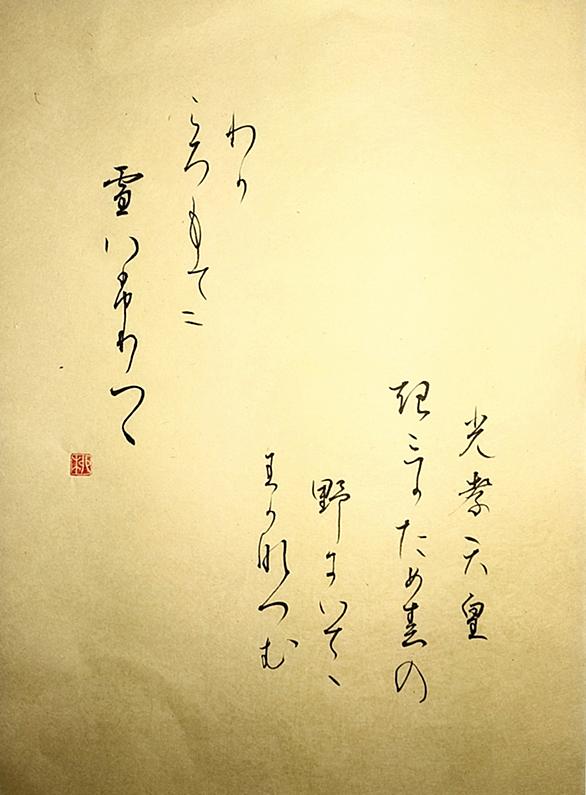 光孝天皇
きみかため春の
野にいてゝ
わかなつむ
わか
ころもてに
雪ハふりつゝ